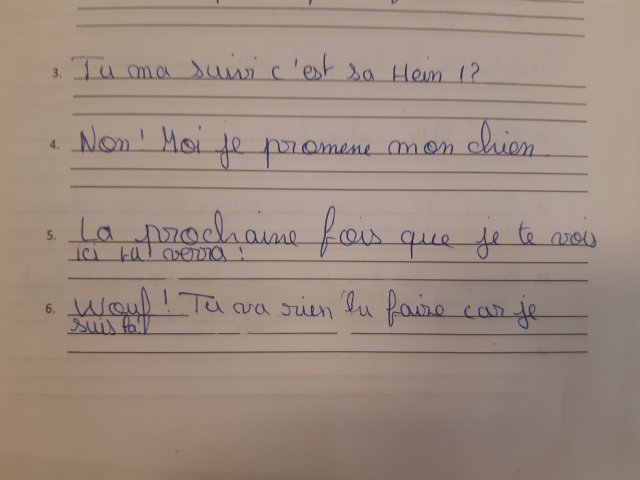 3. Tu ma suivi c'est sa Hein !?
4. Non! Moi je promene mon chien
5. La prochaine fois que je te vois
ici ta verra!
6. Wouf! Tu va rien lu faire car je
suis la!